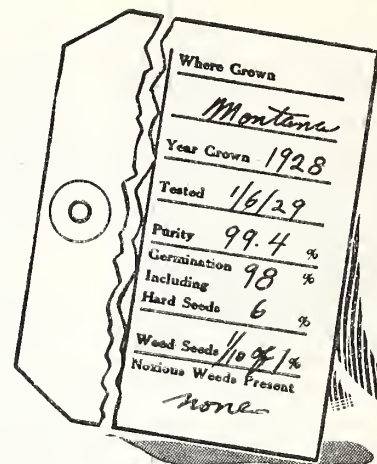 Where Grown
Montana
Year Grown 1928
Tested 1/6/29
Purity 99.4 %
Germination 98 %
Including
Hard Seeds 6 %
Weed Seeds 1/10 of 1 %
Noxious Weeds Present
none